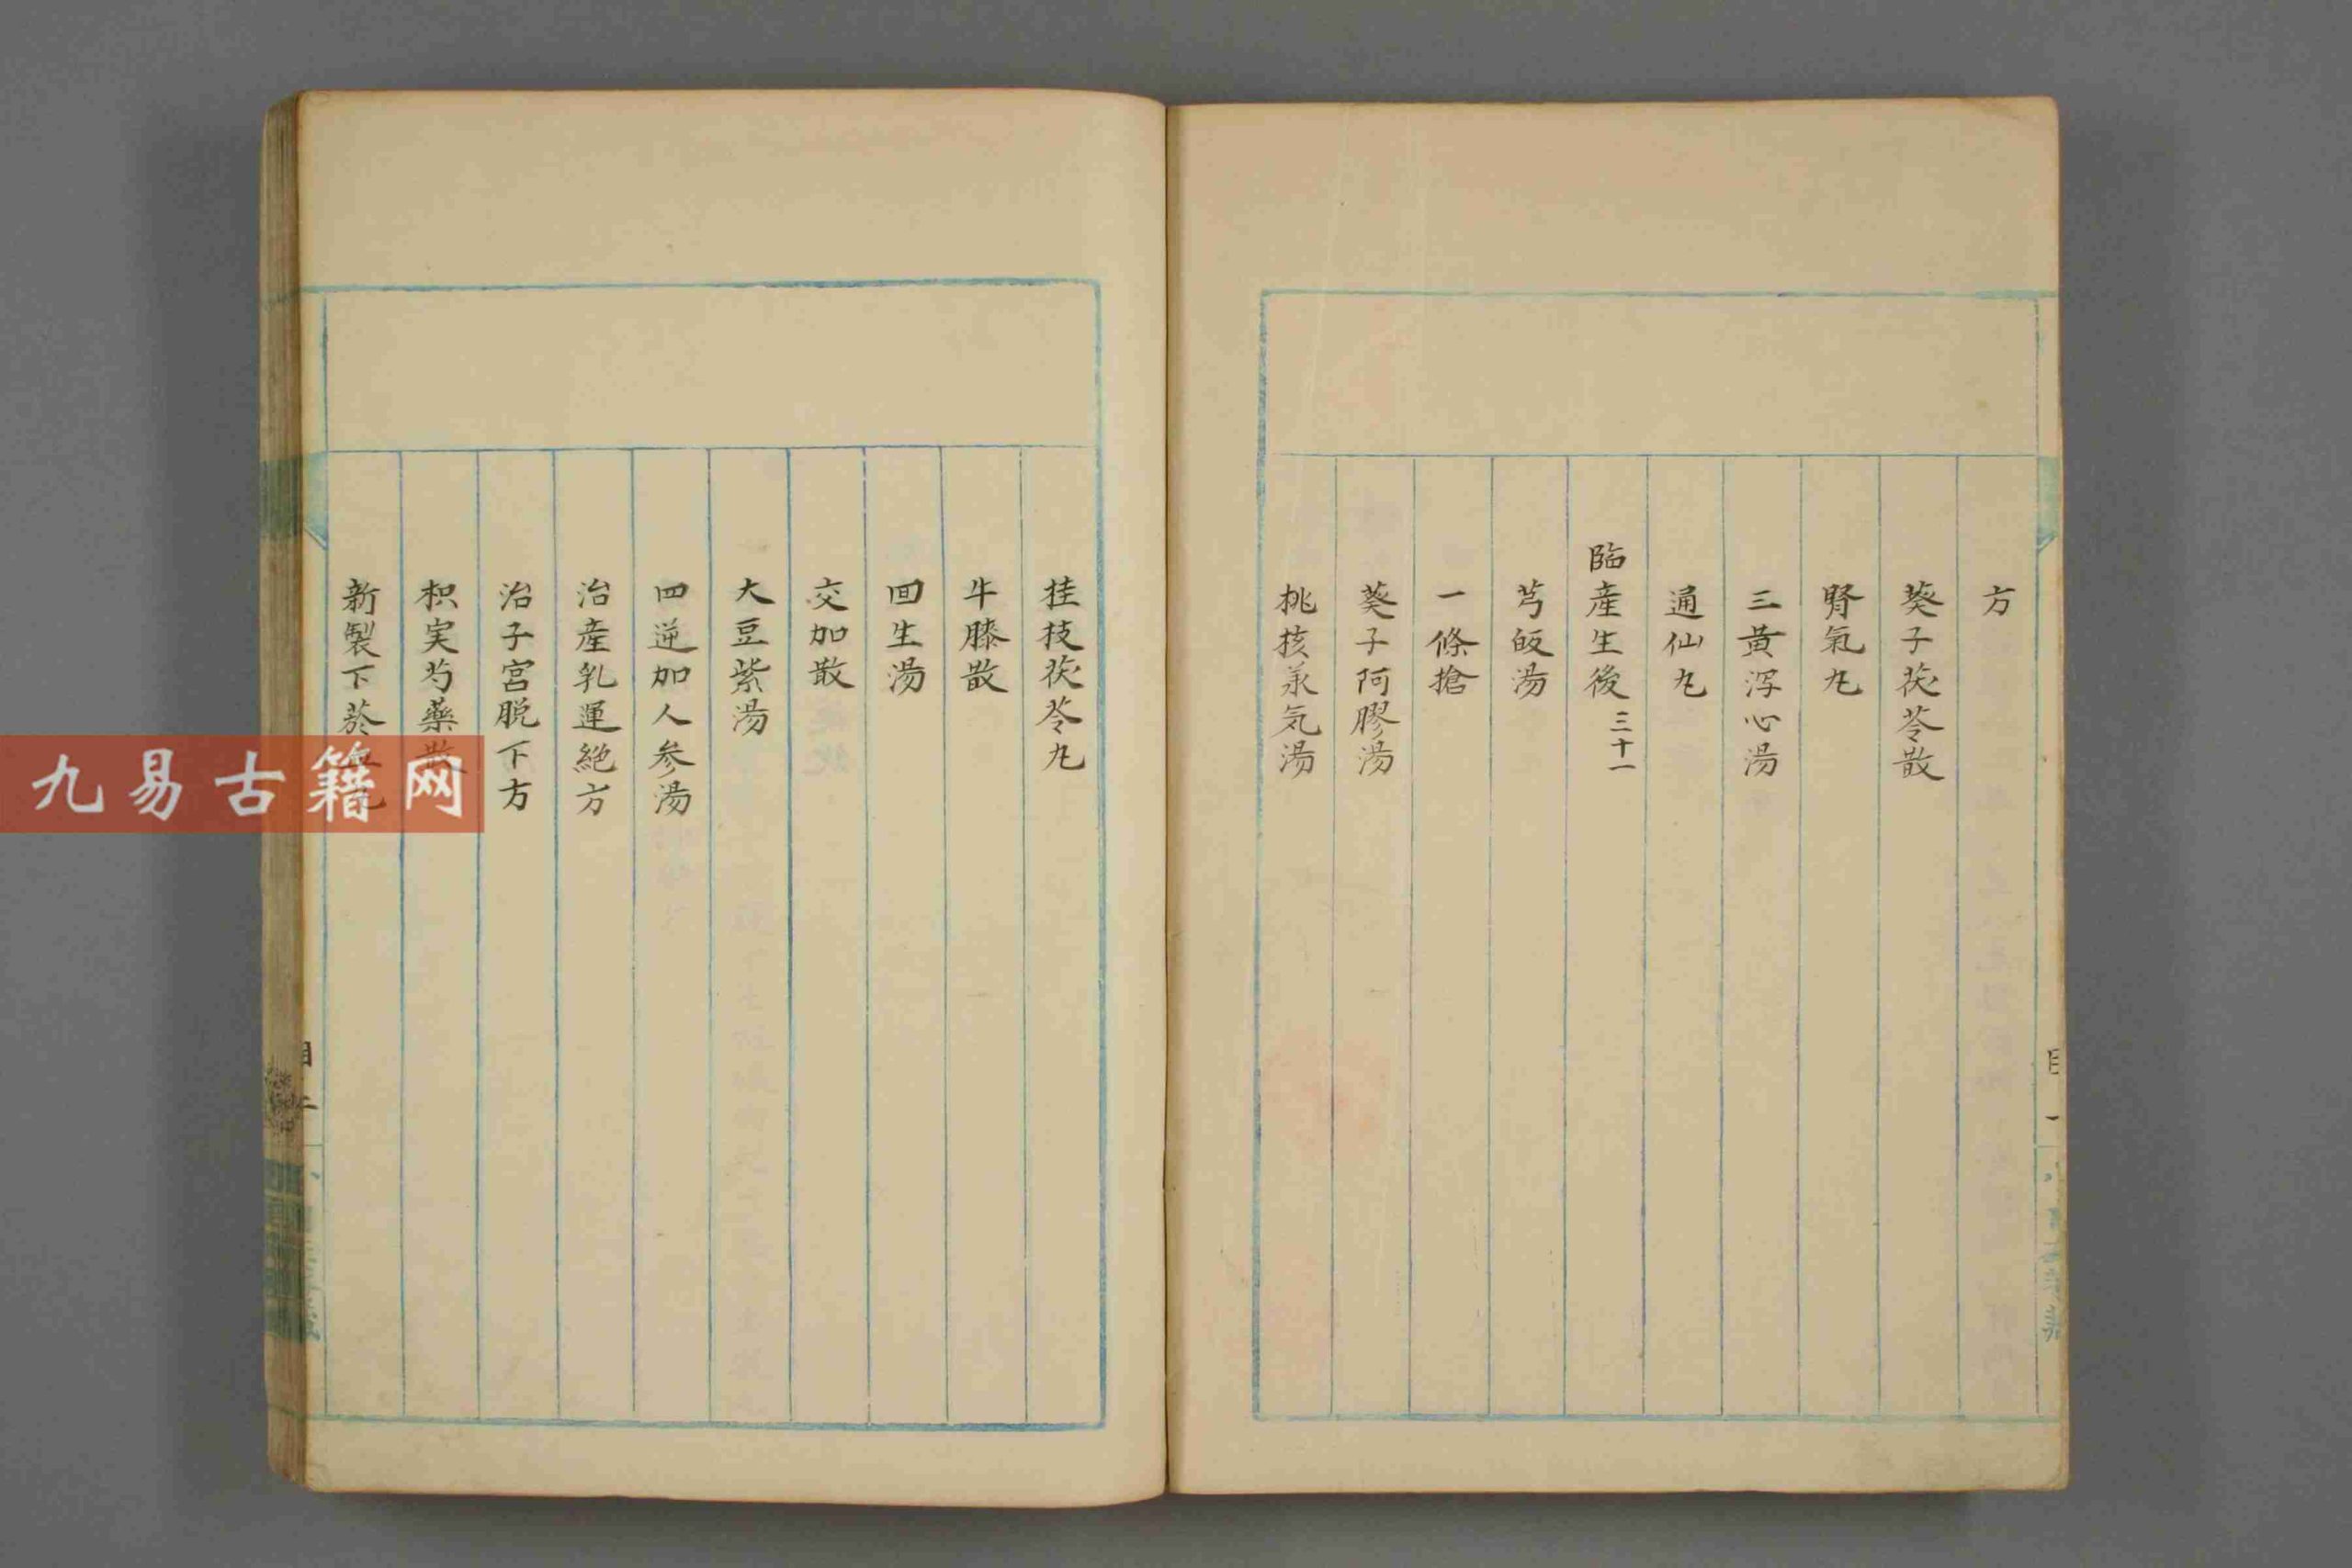 方
葵子茯苓散
腎氣丸
三黄瀉心湯
通仙丸
臨産生後 三十一
芎皈湯
一條搶
葵子阿膠湯
桃核承気湯
目一
桂枝茯苓丸
牛膝散
回生湯
交加散
大豆紫湯
四逆加人参湯
治産乳運絶方
治子宮脱下方
枳実芍薬散
新製下
目二
九易古籍网